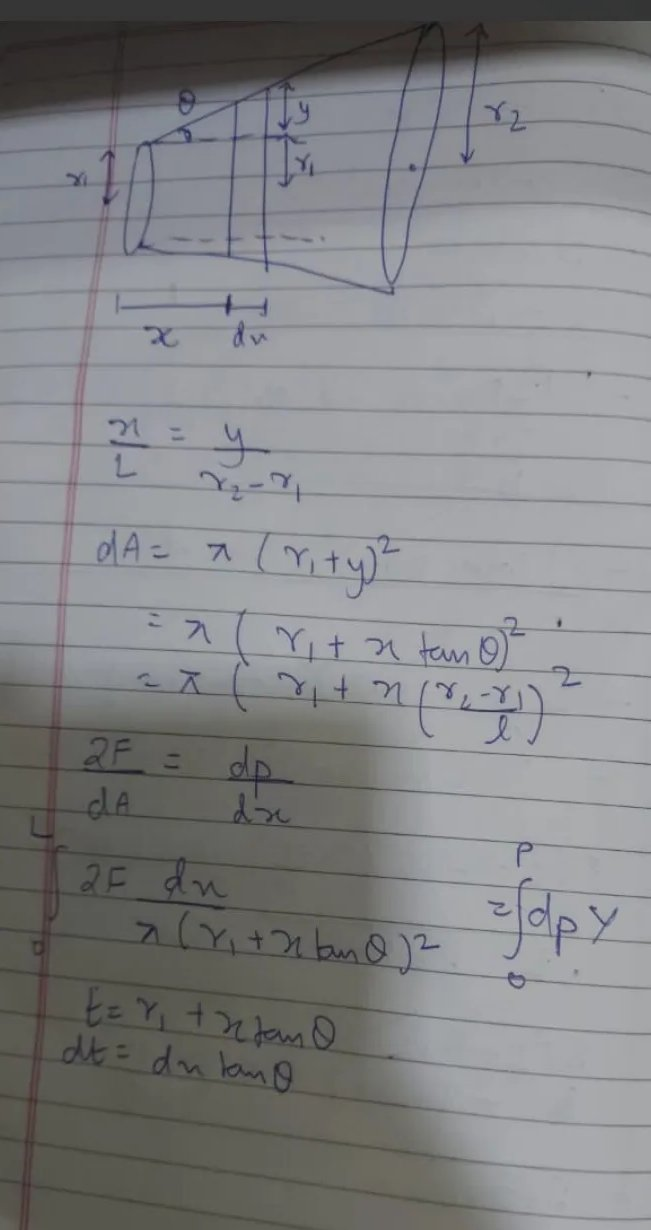 θ
y
r₂
r₁
r₁
x
dx
x/L = y/(r₂-r₁)
dA = π (r₁+y)²
= π ( r₁ + x tanθ)²
= π ( r₁ + x (r₂-r₁)/l )²
2F/dA = dp/dx
∫₀ᴸ 2F dx / π(r₁+x tanθ)² = ∫₀ᴾ dp Y
t = r₁ + x tanθ
dt = dx tanθ